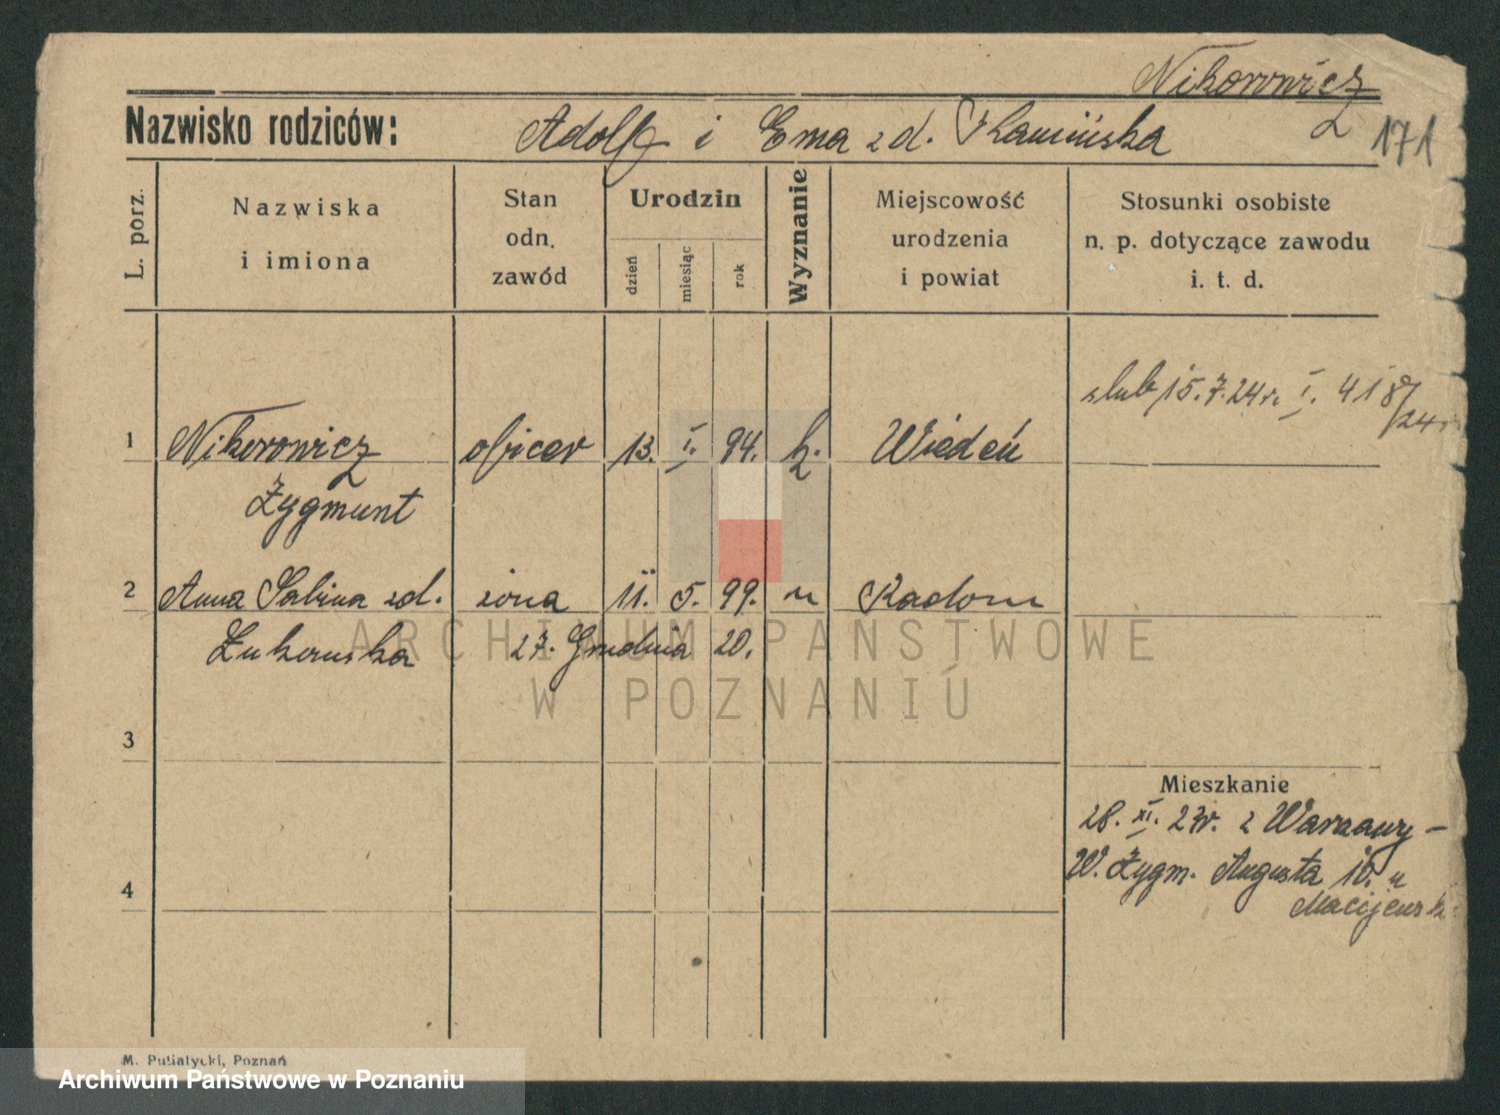 Nikorowicz
Nazwisko rodziców: Adolf i Ema zd. Kamińska 171
L. porz.
Nazwiska
i imiona
Stan
odn.
zawód
Urodzin
dzień
miesiąc
rok
Wyznanie
Miejscowość
urodzenia
i powiat
Stosunki osobiste
n. p. dotyczące zawodu
i. t. d.
ślub 15.7.24 r. I. 418/24
1 Nikorowicz oficer 13. I. 94. Wiedeń
Zygmunt
2 Anna Sabina zd. żona 11. 5. 99. " Radom
Żukowska 27. Grudnia 20.
3
Mieszkanie
28. XI. 23 r. z Warszawy -
W. Zygm. Augusta 10. u
4
M. Putiatycki, Poznań
ARCHIWUM PAŃSTWOWE
W POZNANIU
Archiwum Państwowe w Poznaniu